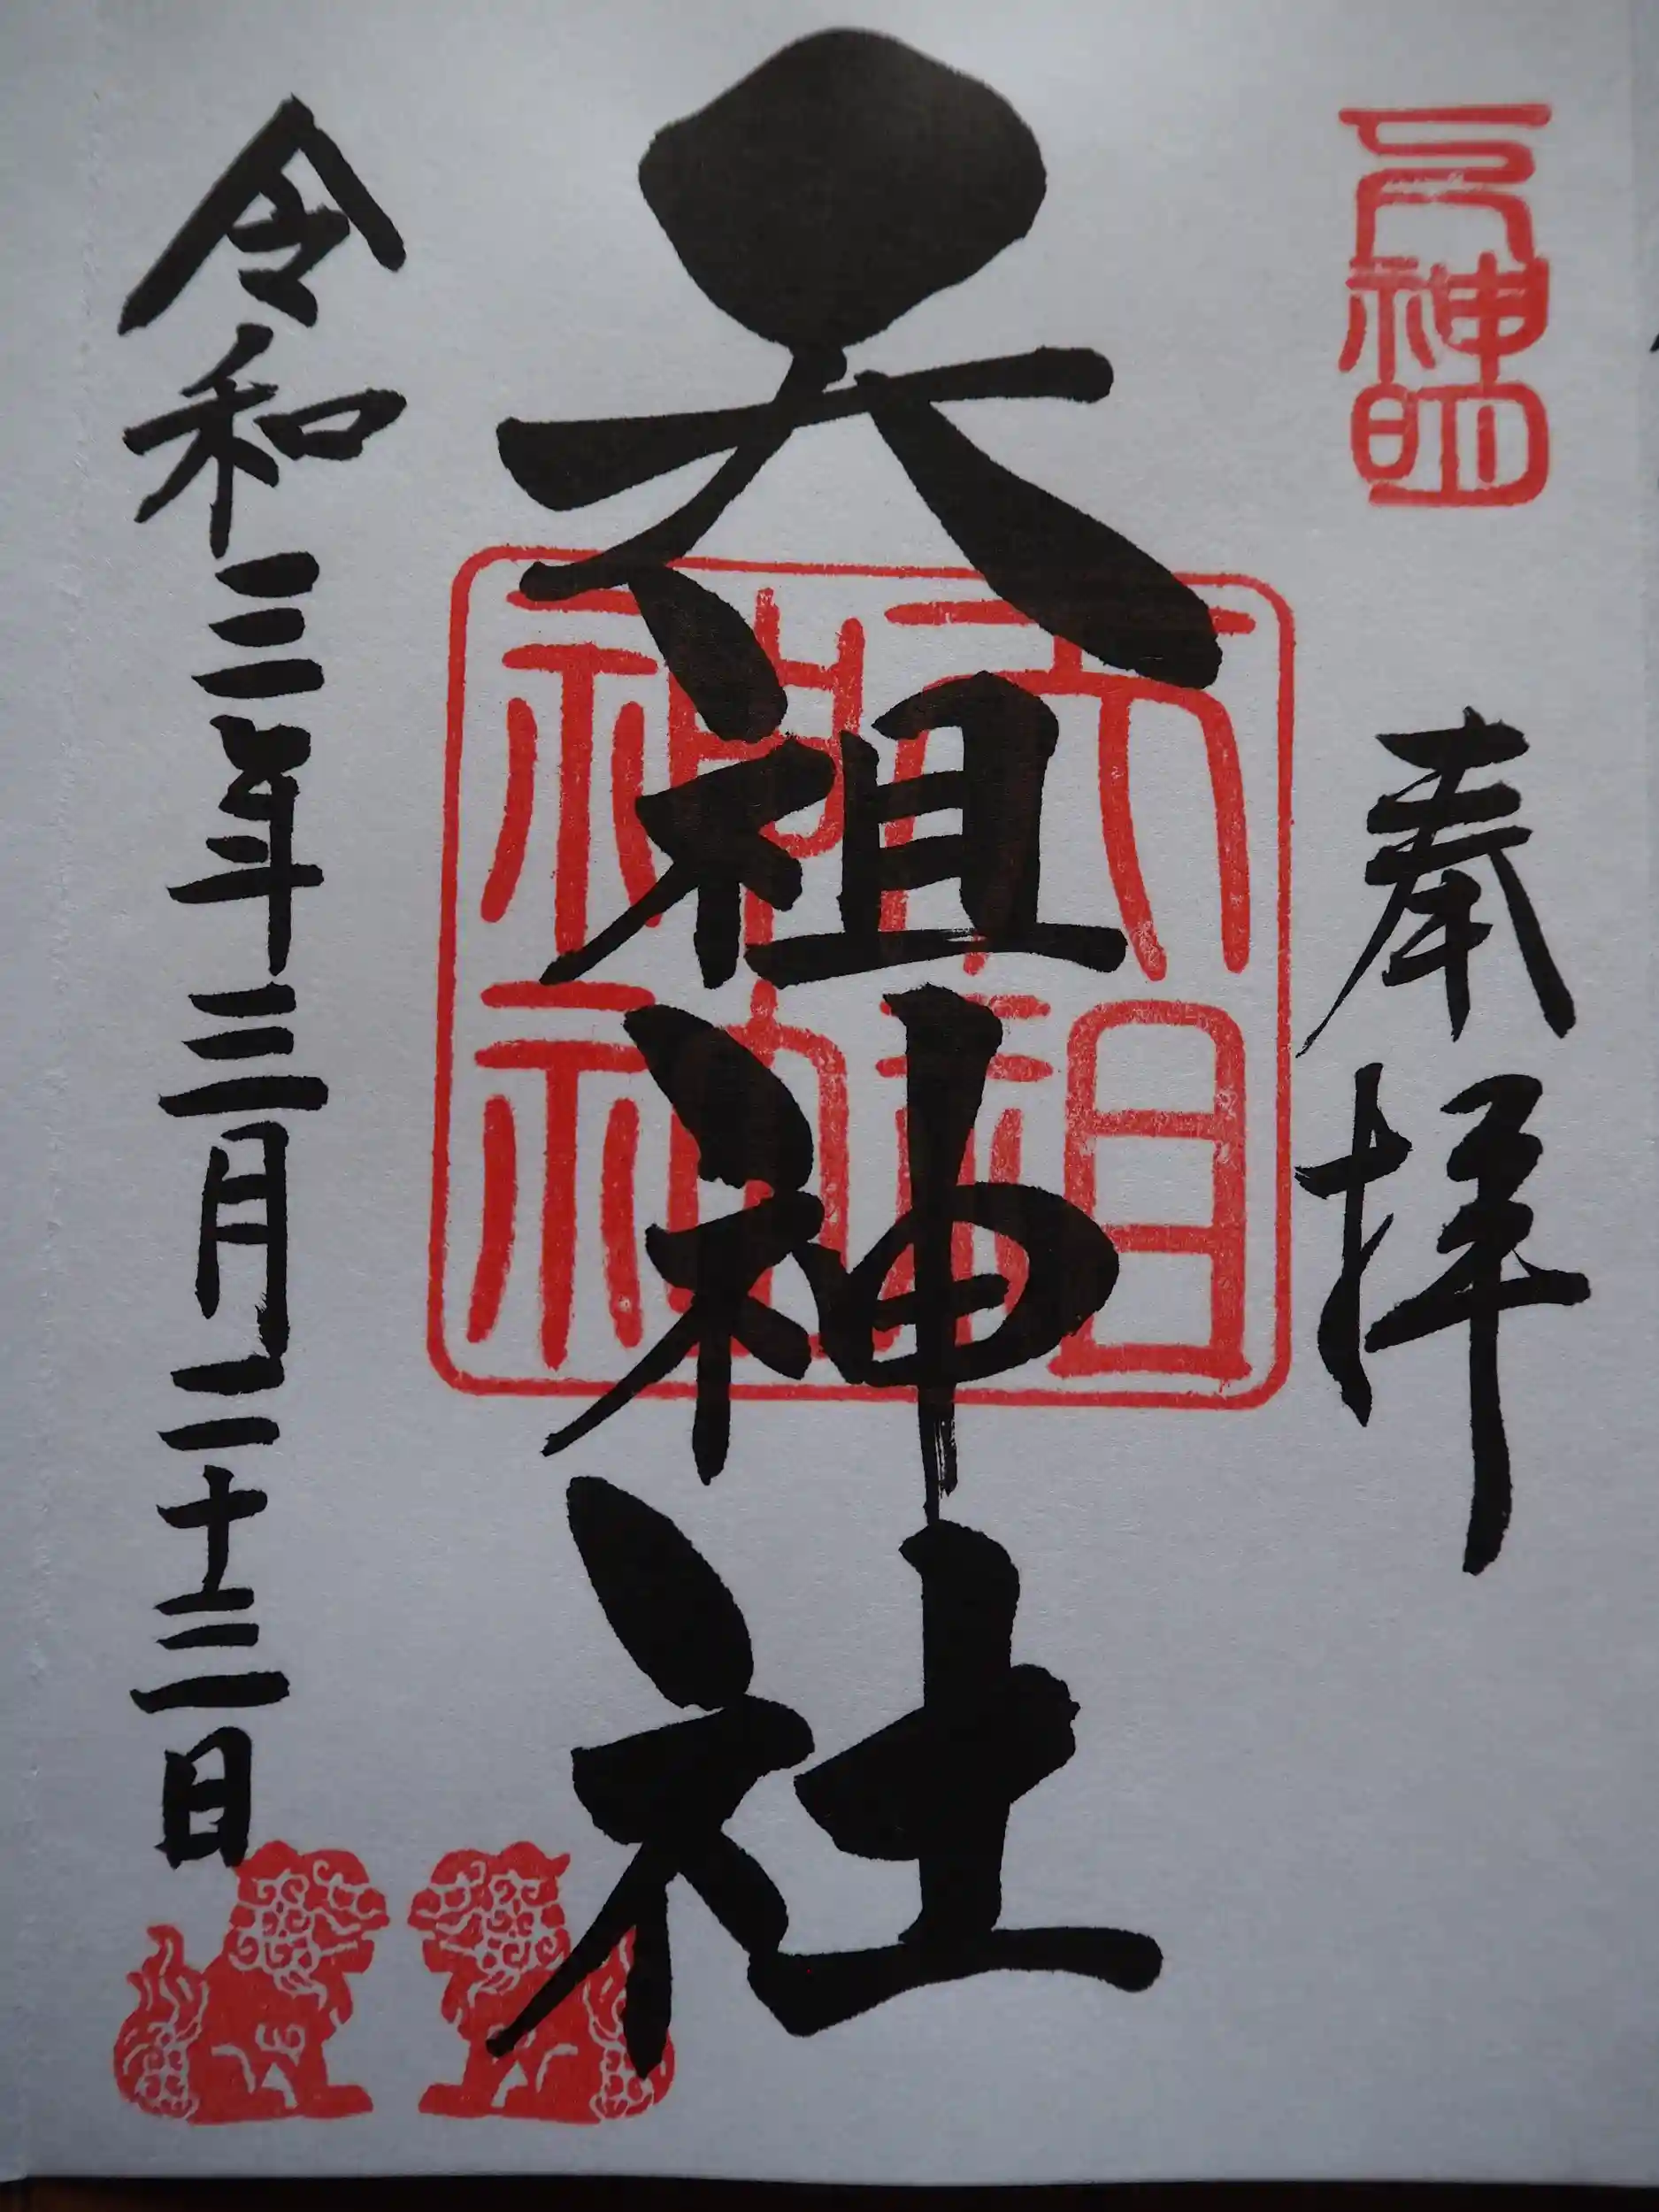 神明
奉拝
天祖神社
天祖神社
令和三年三月二十三日